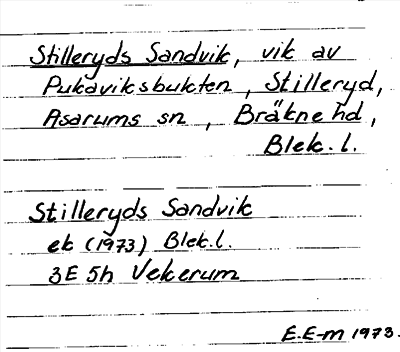 Stilleryds Sandvik, vik av
Pukaviksbukten, Stilleryd,
Asarums sn, Bräkne hd,
Blek. l.
Stilleryds Sandvik
ek (1973) Blek.l.
3E 5h Vekerum
E.E-m 1973.